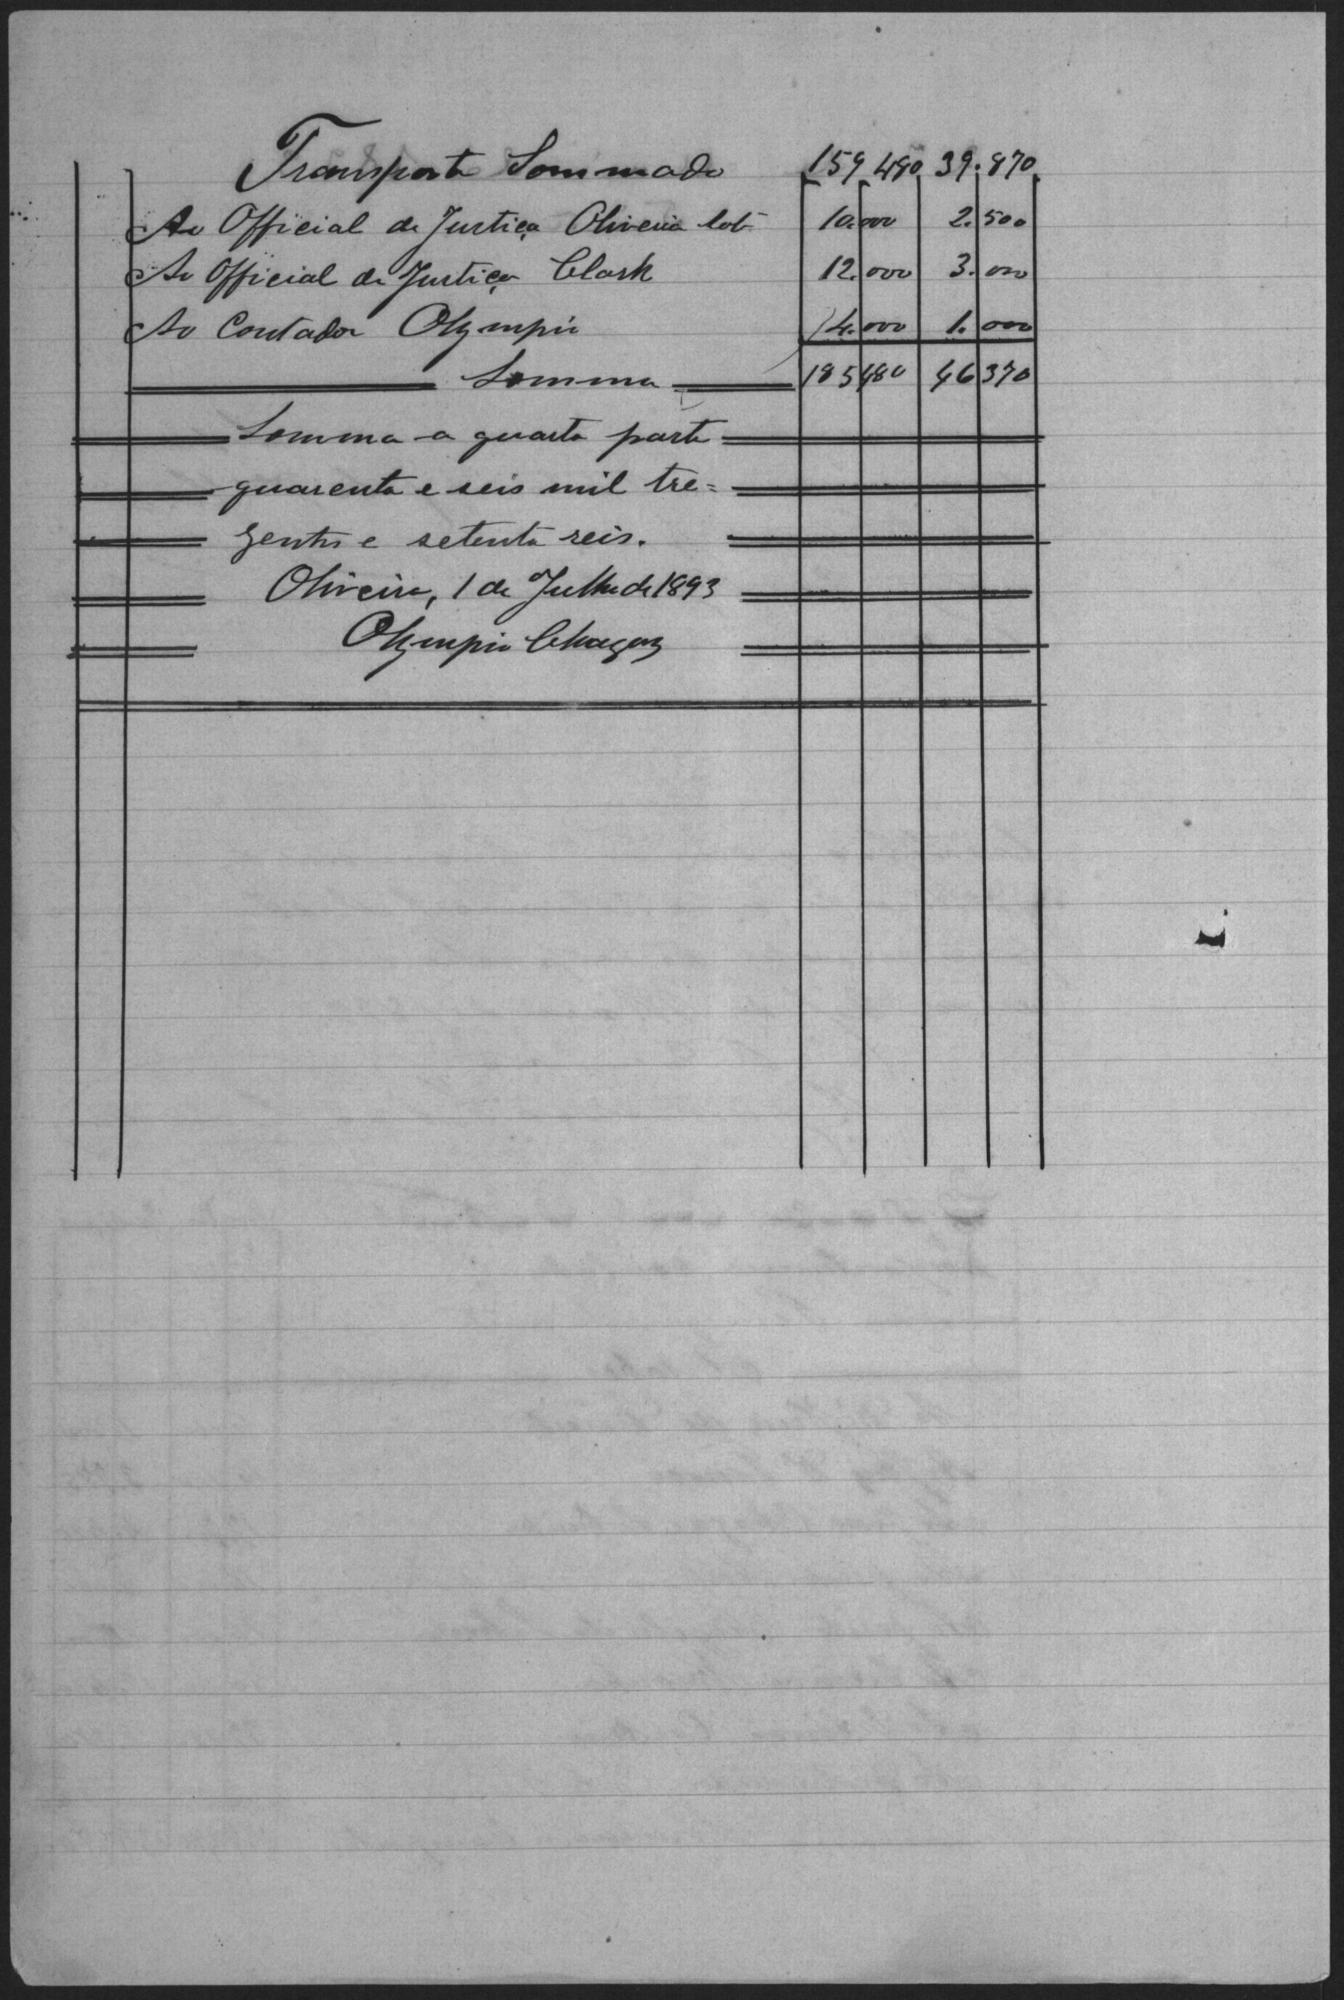 Transporte Sommado 159.480 39.870
Ao Official de Justiça Oliveira 10.000 2.500
Ao Official de Justiça Clark 12.000 3.000
Ao Contador Olympio 4.000 1.000
Somma 185 480 46 370
Somma a quarta parte
quarenta e seis mil tre=
zentos e setenta reis.
Oliveira, 1 de Julho de 1893
Olympio Chagas